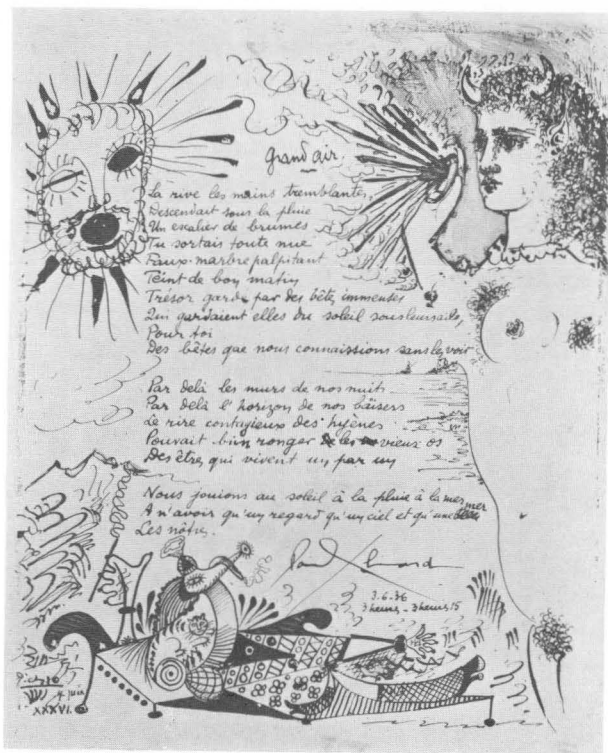 Grand air.
La rive les mains tremblantes,
Descendait sous la pluie
Un escalier de brumes
Tu sortais toute nue
Faux marbre palpitant
Teint de bon matin
Trésor gardé par des bêtes immenses
Qui gardaient elles du soleil sous leurs ailes,
Pour toi
Des bêtes que nous connaissions sans les voir
Par delà les murs de nos nuits
Par delà l'horizon de nos baisers
Le rire contagieux des hyènes
Pouvait bien ronger les vieux os
Des êtres qui vivent un par un
Nous jouions au soleil à la pluie à la mer
A n'avoir qu'un regard qu'un ciel et qu'une
Les nôtres.
Paul Eluard
3.6.36
3 heures - 3 heures 15
Picasso
4 juin
XXXVI.